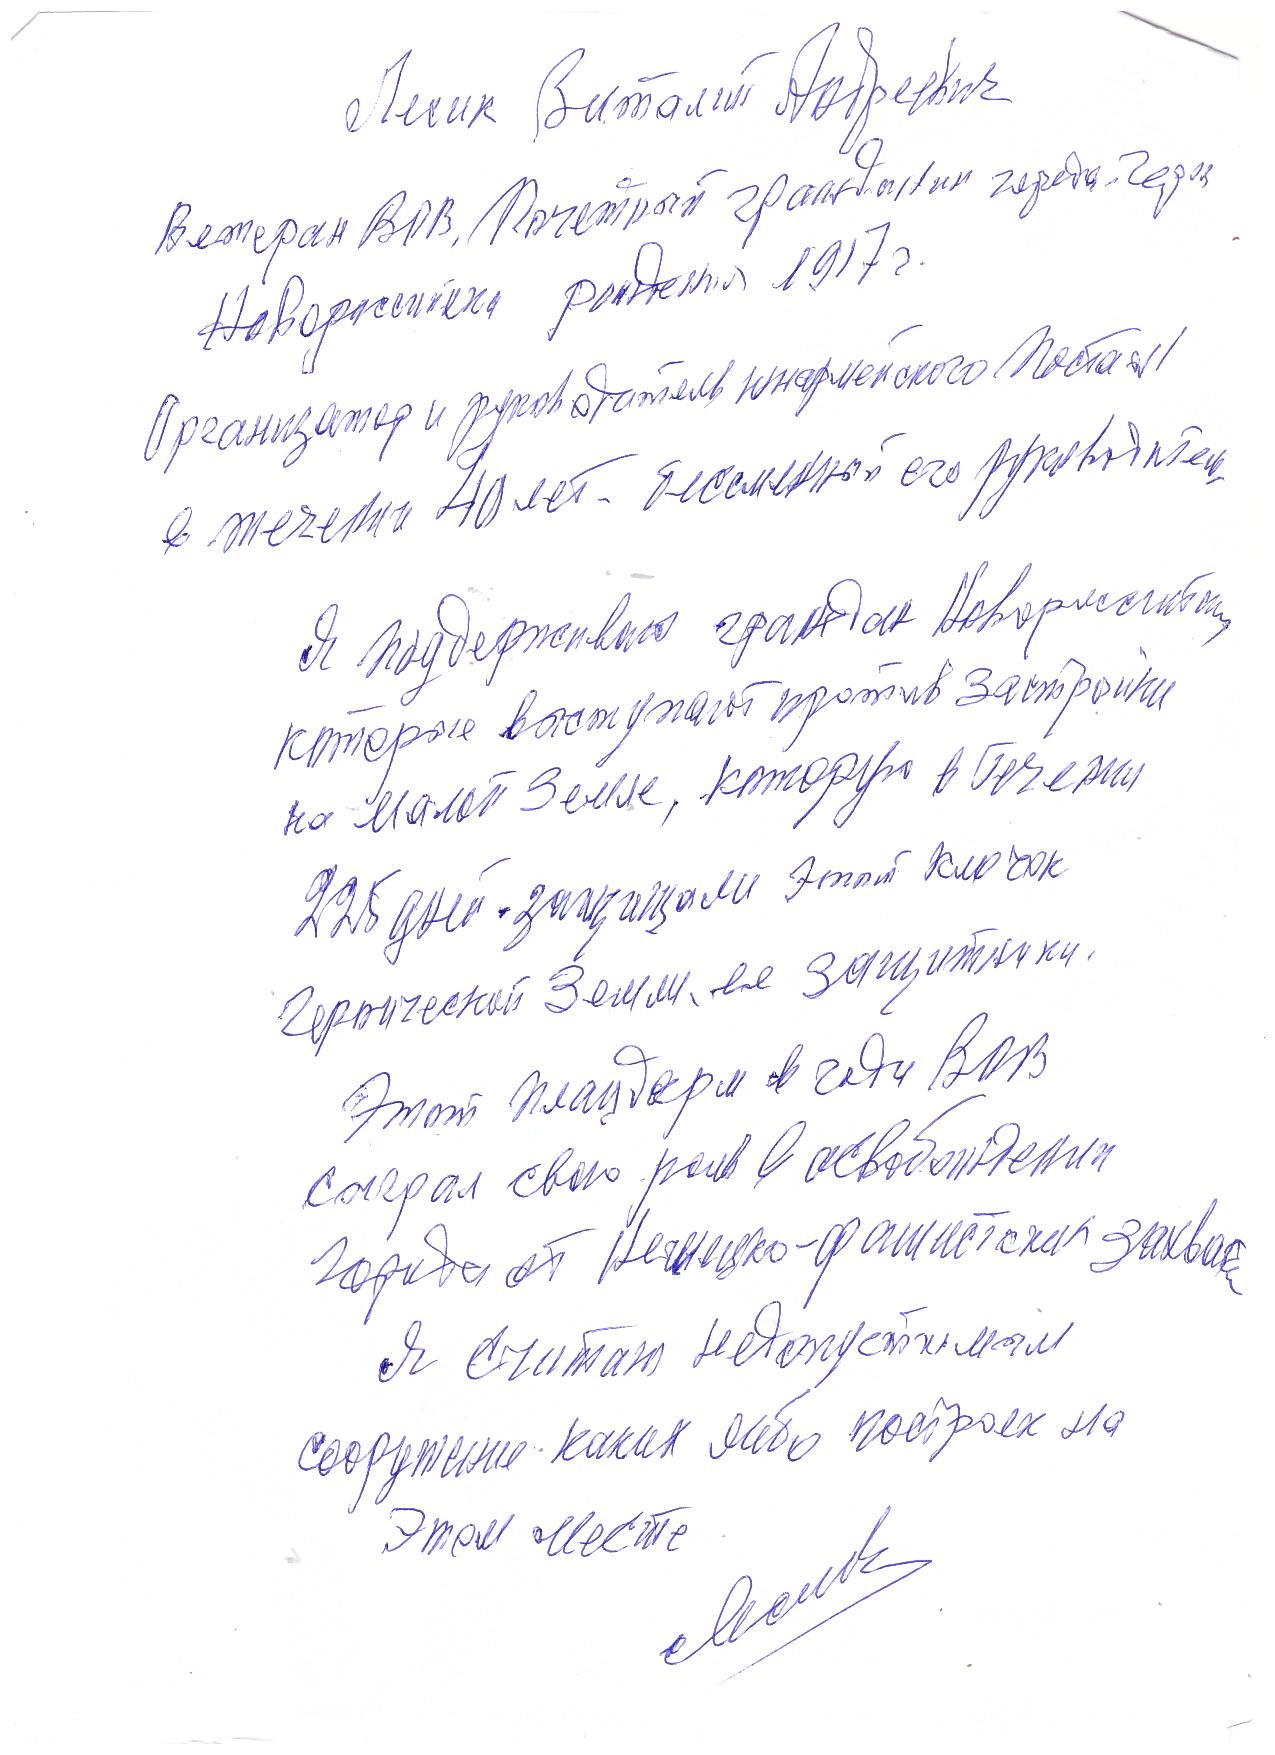 Лесик Виталий Андреевич
Ветеран ВОВ, Почетный гражданин города-Героя
Новороссийска рождения 1917 г.
Организатор и руководитель юнармейского Поста №1
в течении 40 лет - бессменный его руководитель
Я поддерживаю граждан Новороссийска
которые выступают против застройки
на Малой Земле, которую в течении
225 дней - защищали этот клочок
Героической Земли, ее защитники.
Этот плацдарм в годы ВОВ
сыграл свою роль в освобождении
города от Немецко-фашистских захват
Я считаю недопустимым
сооружение каких либо построек на
Этом месте